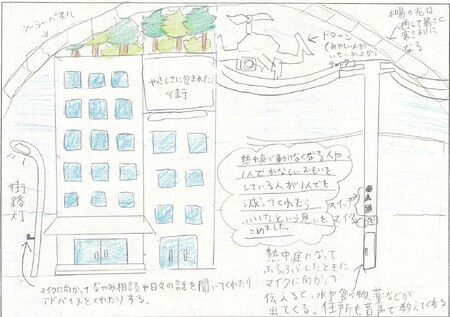 ソーラーパネル
ドローン
(あやしい人が
いないか上から
チェック)
太陽の光は
通して暑さと
寒さよけに
なる
やさしさに包まれた
街
街路灯
熱中症で動けなくなる人や
1人でかなしいおもいを
している人が1人でも
減ってくれたら
いいなという思いを
こめました。
スイッチ
マイク
マイクに向かってなやみ相談や日々の話を聞いてくれたり
アドバイスをくれたりする。
熱中症になって
ふらふらしたときに
マイクに向かって
伝えると、水や食べ物、薬などが
出てくる。住所も音声で教えてくれる